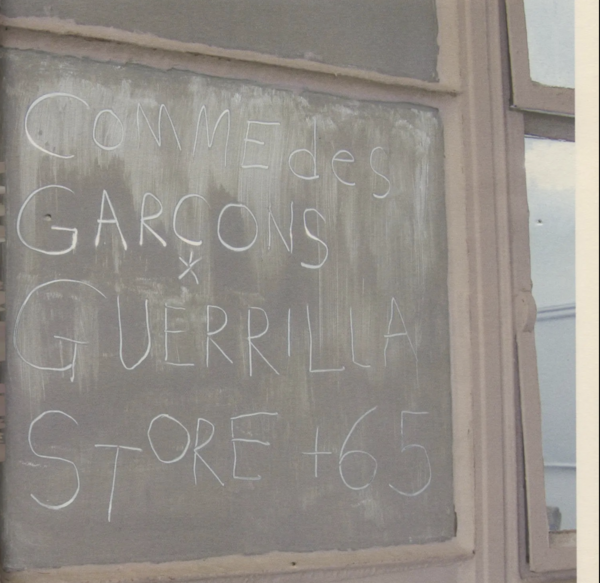 COMMEdes
GARÇONS
*
GUERRILLA
STORE +65